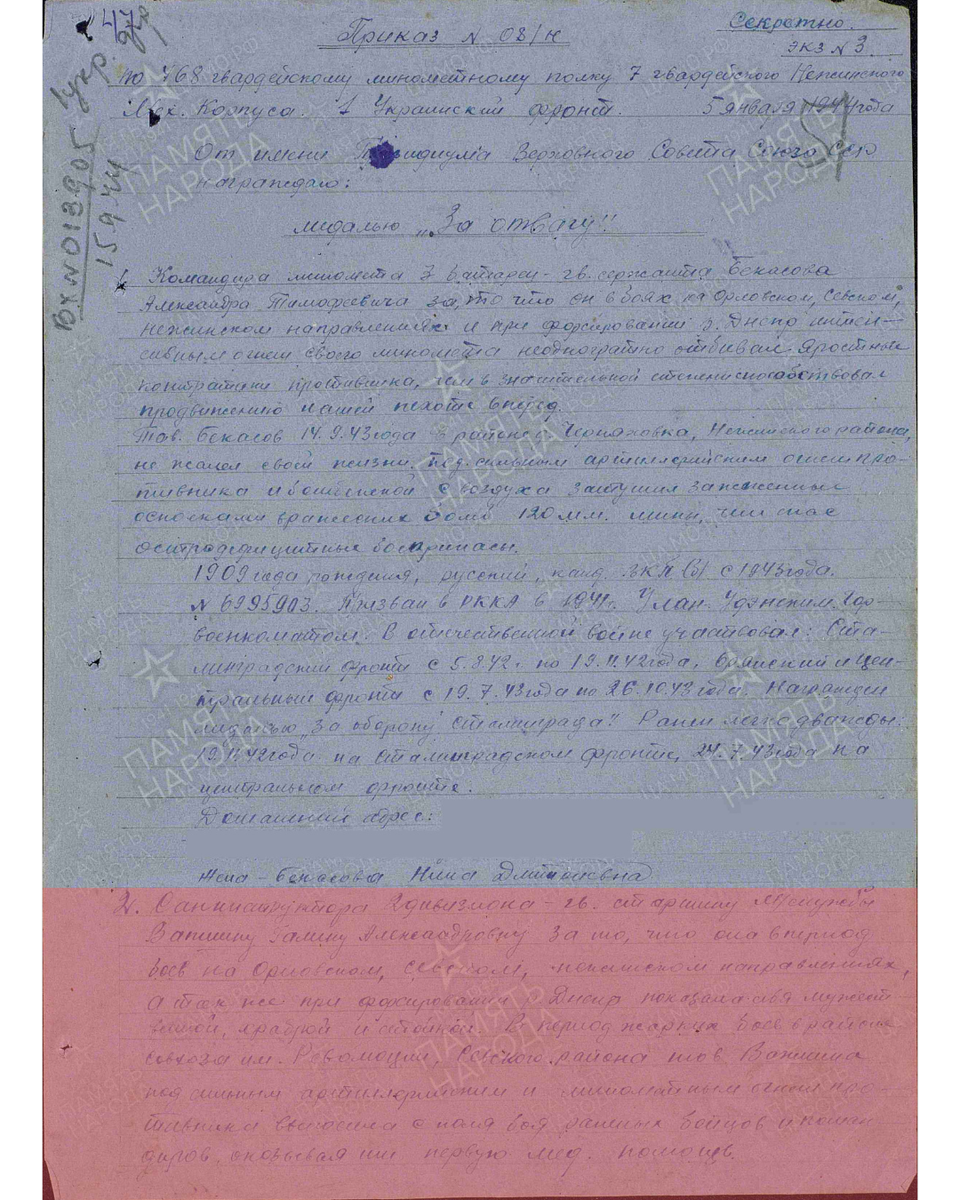 47
Секретно.
Приказ N 08/н
экз N 3.
по 468 гвардейскому минометному полку 7 гвардейского Нежинского
Мех. Корпуса. 1 Украинский фронт. 5 января 1944 года
Вх N 013905
15 9 44
От имени Президиума Верховного Совета Союза ССР
награждаю:
медалью „За отвагу"
1. Командира миномета 7 батареи - гв. сержанта Бекасова
Александра Тимофеевича за, то что он в боях на Орловском, Севском,
Нежинском направлениях и при форсировании р. Днепр интен-
сивным огнем своего миномета неоднократно отбивал яростные
контратаки противника, чем в значительной степени способствовал
продвижению нашей пехоты вперед.
Тов. Бекасов 14.9.43 года в районе д. Черняховка, Нежинского района,
не жалея своей жизни под сильным артиллерийским огнем про-
тивника и бомбежкой с воздуха затушил зажженные
осколками вражеских бомб 120 мм. мины, чем спас
остродефицитные боеприпасы.
1909 года рождения, русский, канд. ВКП(б) с 1943 года.
N 6995903. Призван в РККА в 1941 г. Улан-Удэнским Гор-
военкоматом. В отечественной войне участвовал: Ста-
линградский фронт с 5.8.42 г. по 19.11.42 года. Брянский и Цен-
тральный фронты с 19.7.43 года по 26.10.43 года. Награжден
медалью „За оборону Сталинграда". Ранен легко дважды:
19.11.42 года на Сталинградском фронте, 24.7.43 года на
центральном фронте.
Домашний адрес:
Жена - Бекасова Нина
2. Санинструктора 2 дивизиона - гв. старшину Медслужбы
Вапшину Галину Александровну за то, что она в период
боев на Орловском, Севском, Нежинском направлениях,
а так же при форсировании р. Днепр показала себя мужест-
венной, храброй и стойкой. В период жарких боев в районе
совхоза им. Революции, Севского района тов. Вапшина
под сильным артиллерийским и минометным огнем про-
тивника выносила с поля боя раненых бойцов и коман-
диров, оказывая им первую мед. помощь.
ПАМЯТЬ
НАРОДА